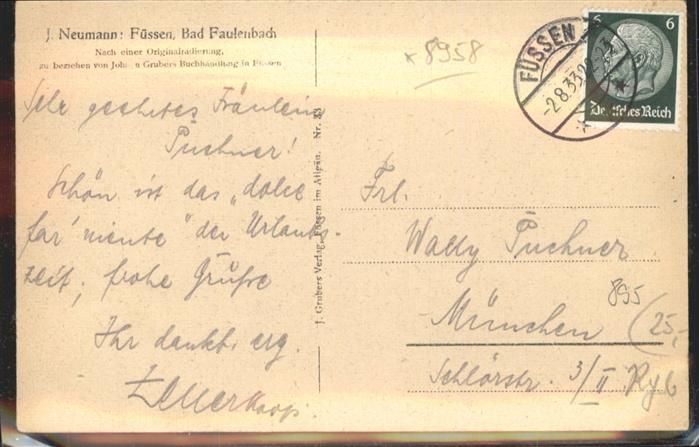 J. Neumann: Füssen, Bad Faulenbach
Nach einer Originalradierung,
zu beziehen von Johann Grubers Buchhandlung in Füssen
*8958
Sehr geehrtes Fräulein
Puchner!
Schön ist das „dolce
far' niente" der Urlaubs-
zeit, frohe Grüße
Ihr dankb. erg.
J. Grubers Verlag, Füssen im Allgäu. Nr. 33
FÜSSEN
-2.8.33.
6 6
Deutsches Reich
Frl.
Wally Puchner
895
München
(25,-
Schlörstr. 3/II